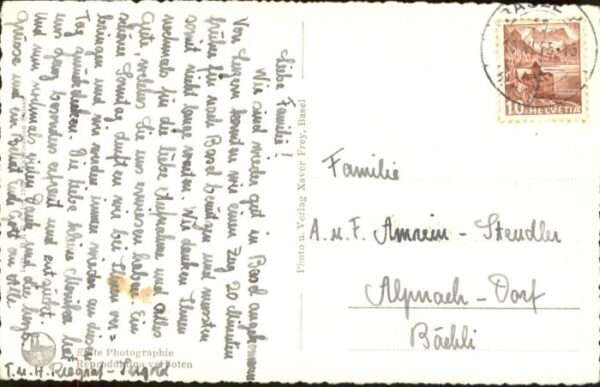 Liebe Familie!
Wir sind wieder gut in Basel angekommen
Von Luzern konnten wir einen Zug 20 Minuten
früher für nach Basel benützen und mussten
somit nicht lange warten. Wir danken Ihnen
nochmals für die liebe Aufnahme und alles
Gute, welches Sie uns erwiesen haben. Ein
schöner Sonntag durften wir bei Ihnen ver=
bringen und wir werden immer wieder an diesen
Tag zurückdenken. Die liebe kleine Monika hat
uns ganz besonders erfreut und entzückt.
und nun nochmals vielen Dank und die herzl.
Grüsse und ein Behüt Euch Gott an Alle
T. u. H. - Sigrid
Photo u. Verlag Xaver Frey, Basel
Echte Photographie
Reproduktion verboten
BASEL
10 HELVETIA
Familie
A. u. F. Amrein-Steudler
Alpnach-Dorf
Bächli